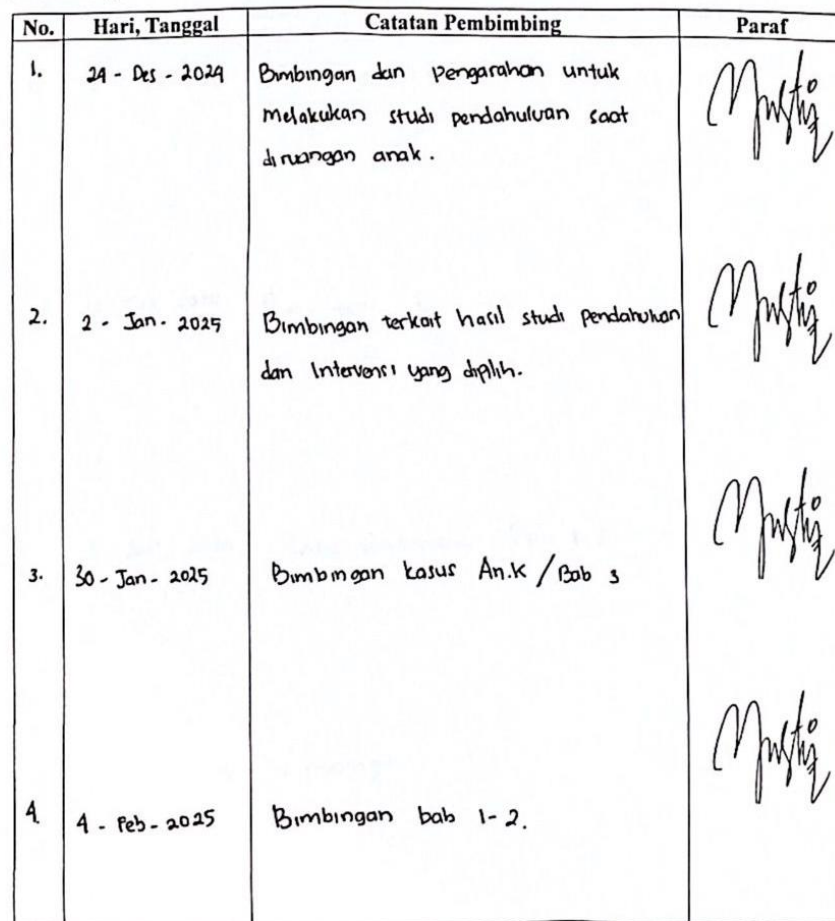 No. Hari, Tanggal Catatan Pembimbing Paraf
1. 24 - Des - 2024 Bimbingan dan pengarahan untuk
melakukan studi pendahuluan saat
diruangan anak.
2. 2 - Jan - 2025 Bimbingan terkait hasil studi pendahuluan
dan Intervensi yang dipilih.
3. 30 - Jan - 2025 Bimbingan kasus An.K / Bab 3
4. 4 - Feb - 2025 Bimbingan bab 1-2.